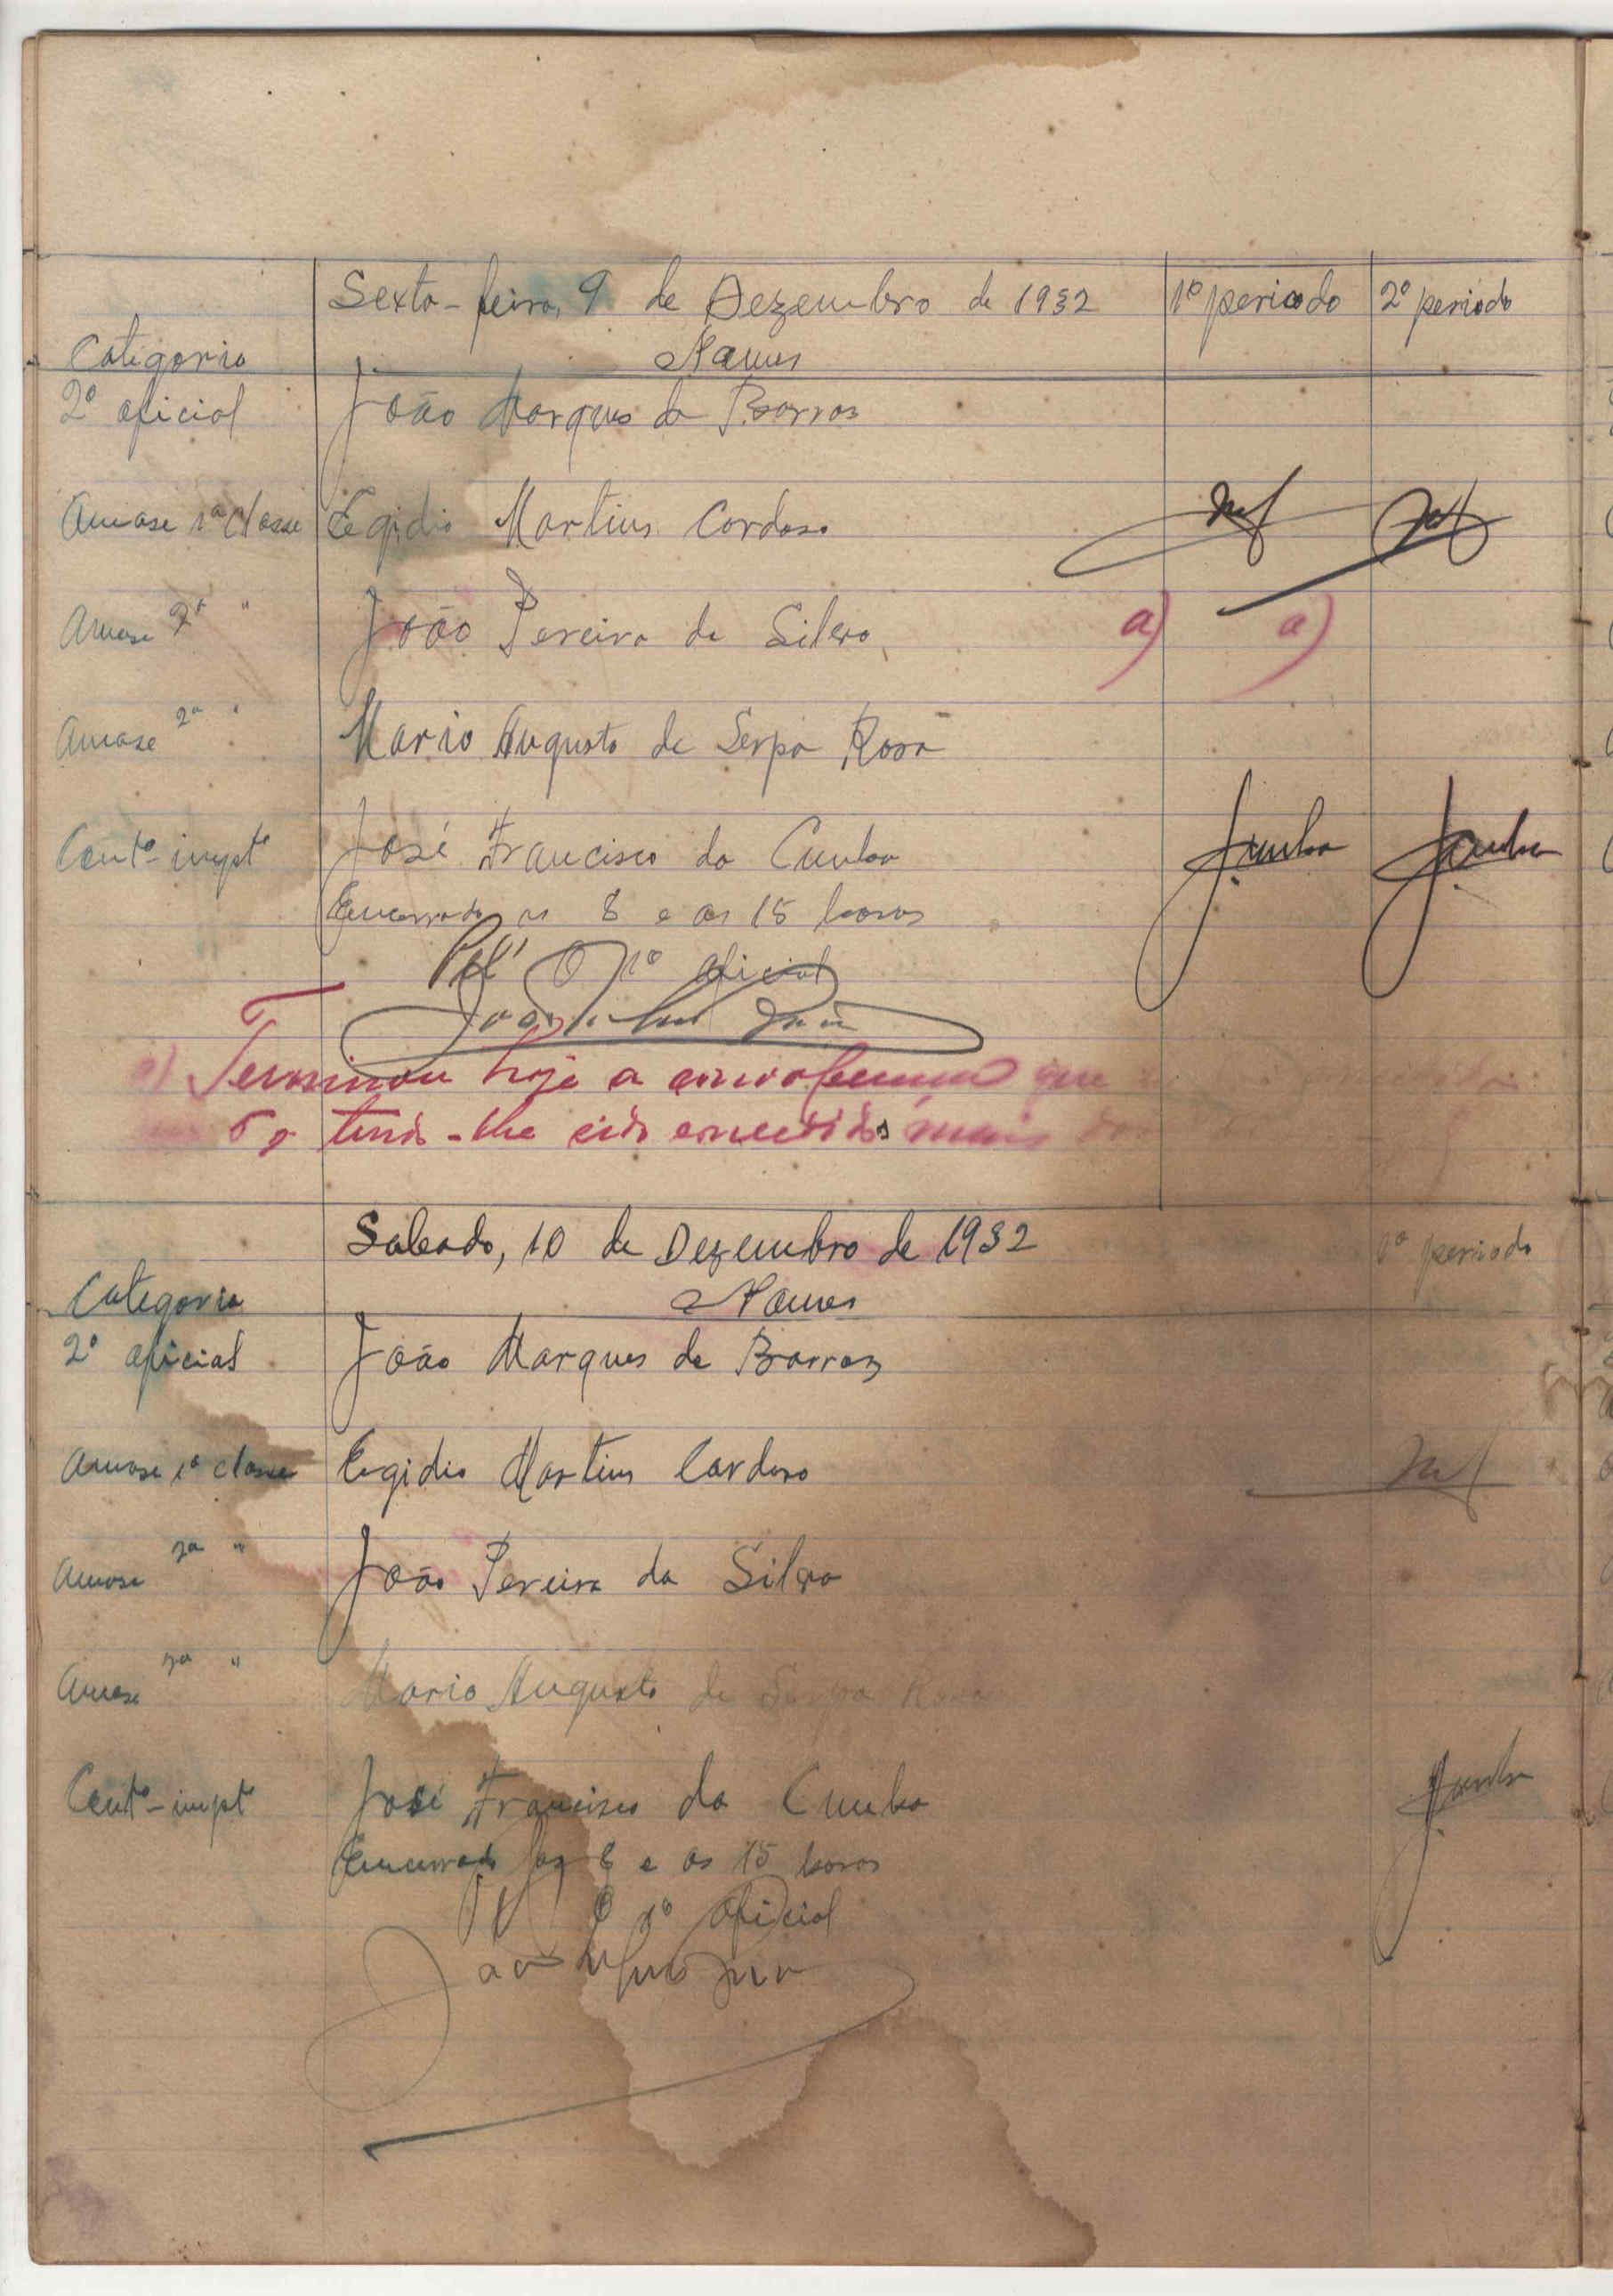 Sexta-feira, 9 de Dezembro de 1932 1º periodo 2º periodo
Categoria Nomes
2º oficial João Marques de Barros
Amase 1ª classe Egidio Martins Cardoso
Amase 2ª " João Pereira da Silva a) a)
Amase 2ª " Mario Augusto de Serpa Rosa
Contº-impt José Francisco da Cunha Jcunha Jcunha
Encerrado as 8 e as 15 horas
Pel' O 1º oficial
a) Terminou hoje a que
tendo-lhe sido concedidos mais
Sabado, 10 de Dezembro de 1932 1º periodo
Categoria Nomes
2º oficial João Marques de Barros
Amase 1ª classe Egidio Martins Cardoso
Amase 2ª " João Pereira da Silva
Amase 2ª " Mario Augusto de Serpa Rosa
Contº-impt José Francisco da Cunha Jcunha
Encerrado as 8 e as 15 horas
O 1º oficial